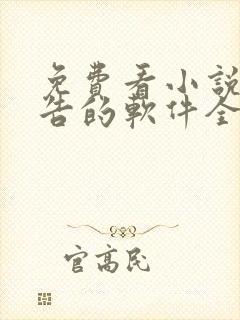 免費看小說
告的軟件全
官高民